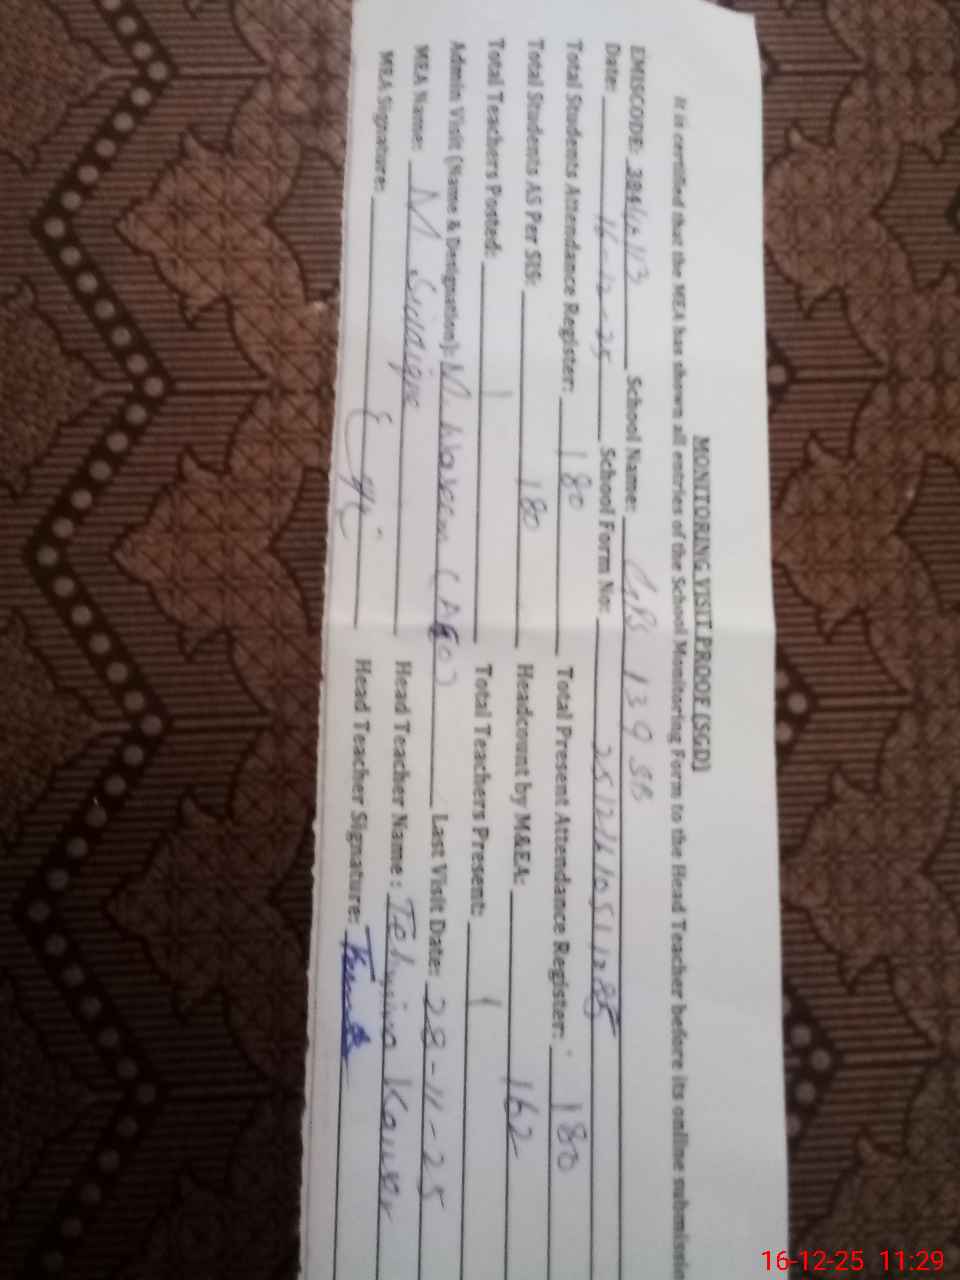 MONITORING VISIT PROOF (SGD)
It is certified that the MEA has shown all entries of the School Monitoring Form to the Head Teacher before its online submission
EMISCODE: School Name: GPS 139 SB
Date: 16-12-25 School Form No:
Total Students Attendance Register: 180 Total Present Attendance Register: 180
Total Students AS Per SIS: 180 Headcount by M&EA: 162
Total Teachers Posted: 1 Total Teachers Present: 1
Admin Visit (Name & Designation): M. Waseem (AEO) Last Visit Date: 28-11-25
MEA Name: M Siddique Head Teacher Name: Tehmina Kousar
MEA Signature: Head Teacher Signature:
16-12-25 11:29